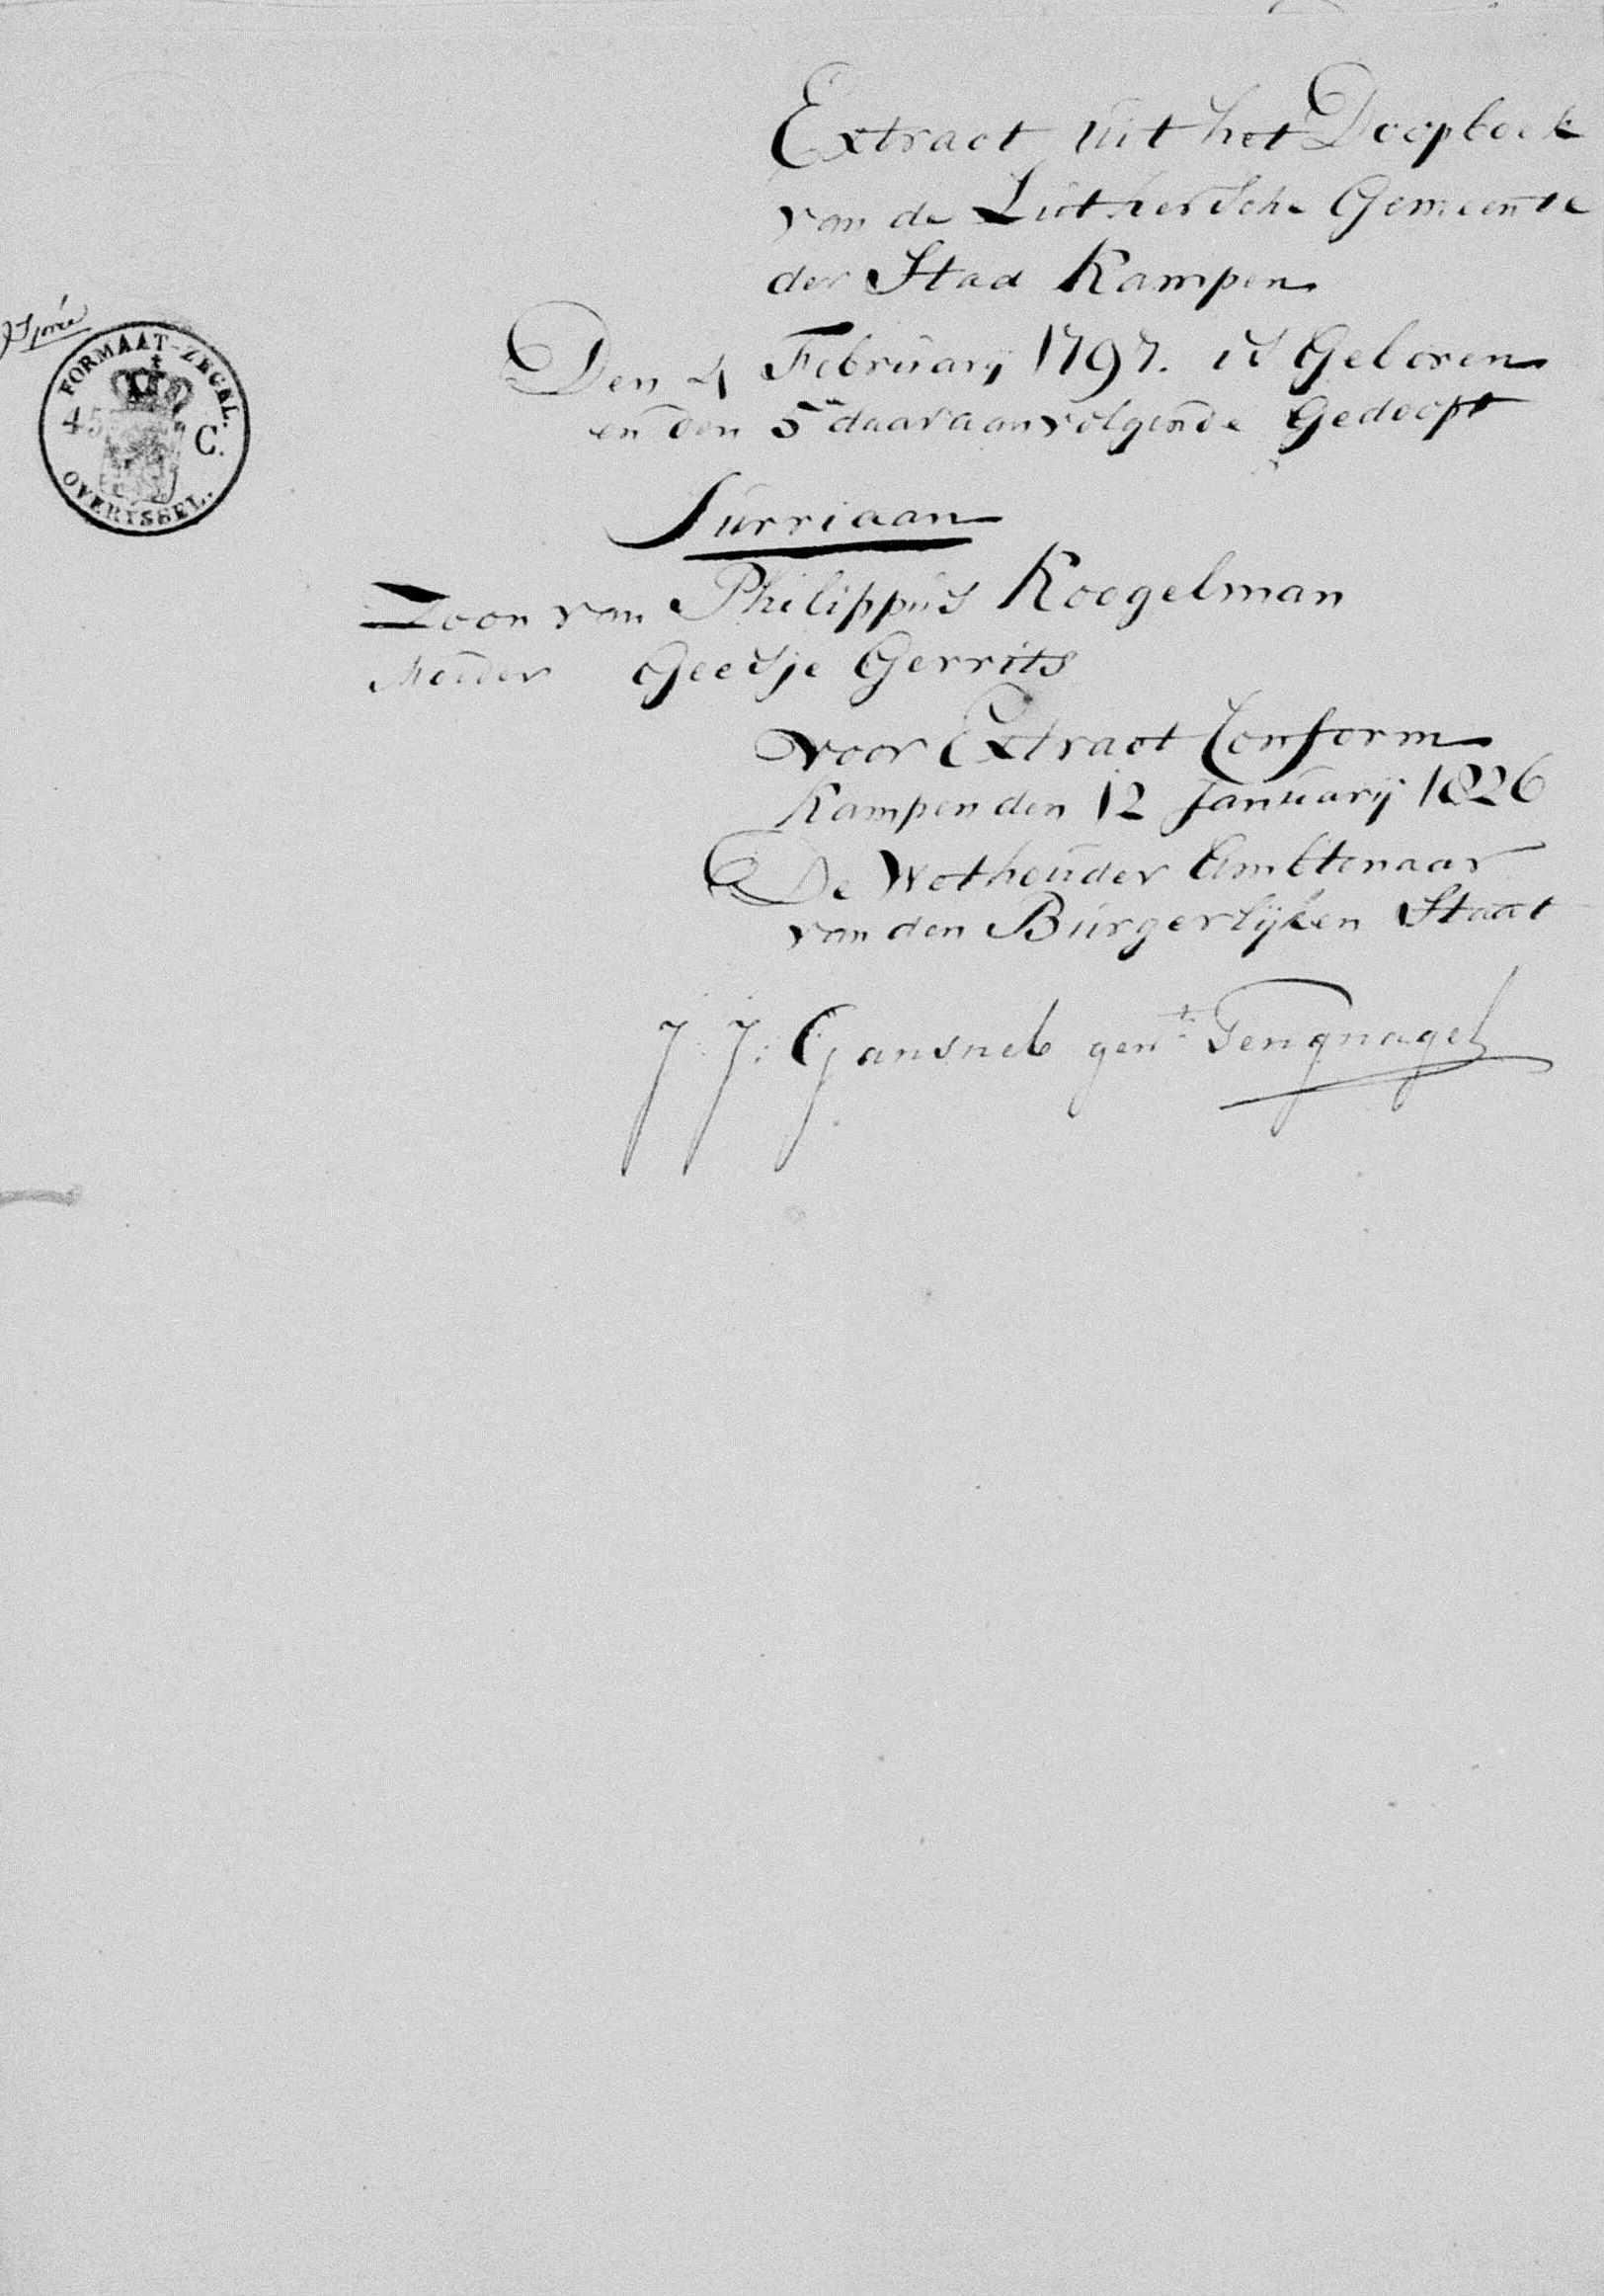 Extract uit het Doopboek
van de Luthersche Gemeente
der Stad Kampen
FORMAAT-ZEGEL.
45 C.
OVERYSSEL.
Den 4 Februarij 1797. is Geboren
en den 5en daaraanvolgende Gedoopt
Jurriaan
Zoon van Philippus Koogelman
Moeder Geesje Gerrits
voor Extract Conform
Kampen den 12 Januarij 1826
De Wethouder Ambtenaar
van den Burgerlijken Staat
J: J: Gansneb gent Tengnagel